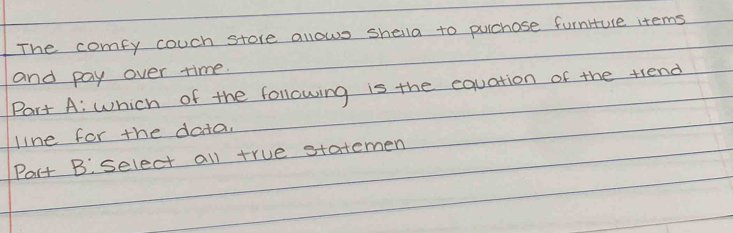 The comfy couch store allows Sheila to purchase furniture items
and pay over time.
Part A: which of the following is the equation of the trend
line for the data.
Part B: Select all true statemen